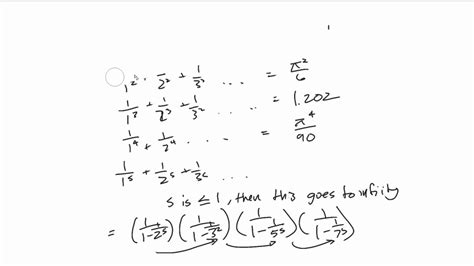 1² · 1/2² + 1/3² ... = π²/6
1/1³ + 1/2³ + 1/3² ... = 1.202
1/1⁴ + 1/2⁴ ... = π⁴/90
1/1ˢ + 1/2ˢ + 1/3ˢ ...
s is ≤ 1, then this goes to infinity
= (1/1-2ˢ) (1/1-3²) (1/1-1/5ˢ) (1/1-1/7ˢ)